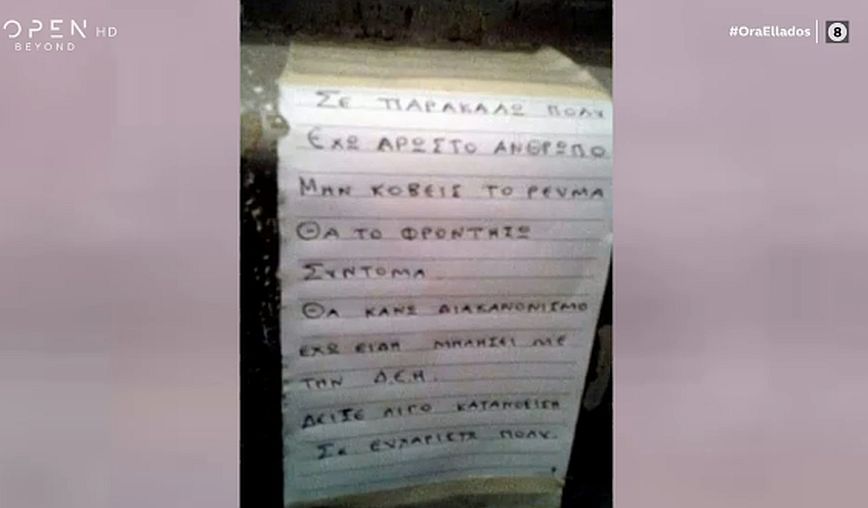 OPEN HD
BEYOND
#OraEllados 8
ΣΕ ΠΑΡΑΚΑΛΩ ΠΟΛΥ
ΕΧΩ ΑΡΩΣΤΟ ΑΝΘΡΩΠΟ
ΜΗΝ ΚΟΒΕΙΣ ΤΟ ΡΕΥΜΑ
ΘΑ ΤΟ ΦΡΟΝΤΗΣΩ
ΣΥΝΤΟΜΑ
ΘΑ ΚΑΝΩ ΔΙΑΚΑΝΟΝΙΣΜΟ
ΕΧΩ ΕΙΔΗ ΜΗΛΗΣΕΙ ΜΕ
ΤΗΝ Δ.Ε.Η.
ΔΕΙΞΕ ΛΙΓΟ ΚΑΤΑΝΟΕΙΣΗ
ΣΕ ΕΥΧΑΡΙΣΤΩ ΠΟΛΥ.